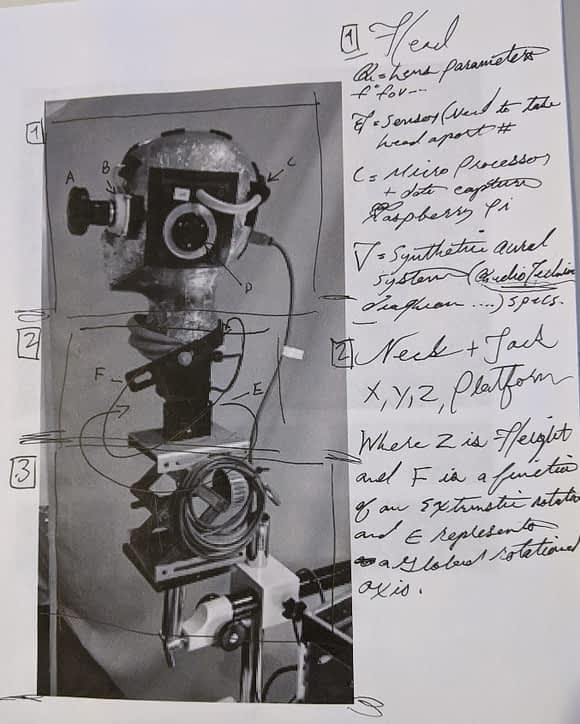 1 Head
A = Lens parameters
f° for ---
= Sensor (Need to take
head apart #
C = Micro Processor
+ data capture
Raspberry Pi
= Synthetic aural
system (Audio Technica
diaghram ....) specs.
2 Neck + Jack
X, Y, Z, Platform
Where Z is Height
and F is a function
of an Extrinstic rotation
and E represents
a Global rotational
axis.
1
A
B
C
D
2
F
E
3